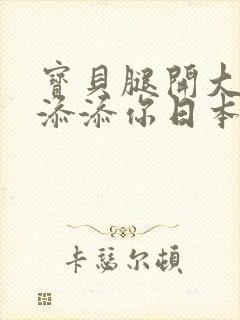 寶貝腿開大
添添你日本
卡瑟尔頓